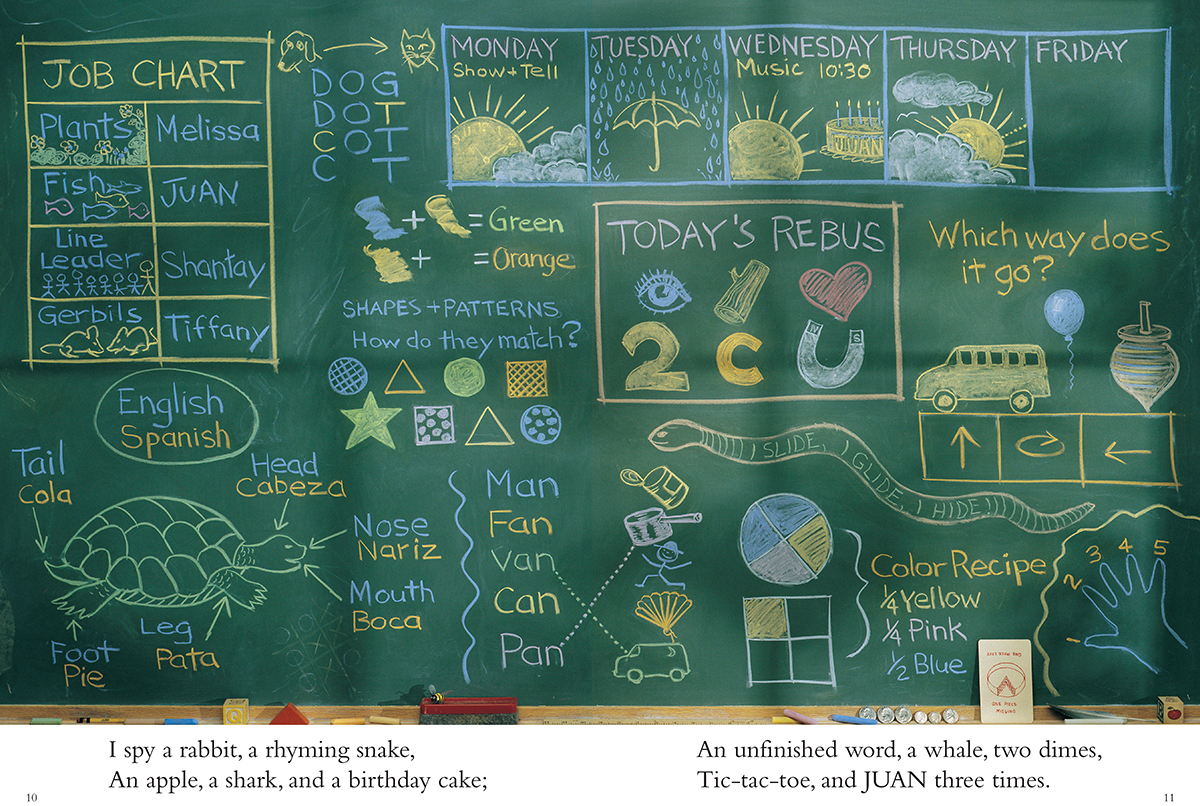 JOB CHART
Plants
Melissa
Fish
JUAN
Line
Leader
Shantay
Gerbils
Tiffany
DOG
DOT
COT
C T
MONDAY
Show + Tell
TUESDAY
WEDNESDAY
Music 10:30
JUAN
THURSDAY
FRIDAY
+ = Green
+ = Orange
SHAPES + PATTERNS
How do they match?
TODAY'S REBUS
2 C U
N S
Which way does
it go?
I SLIDE, I GLIDE, I HIDE!!!
English
Spanish
Tail
Cola
Head
Cabeza
Nose
Nariz
Mouth
Boca
Leg
Pata
Foot
Pie
Man
Fan
Van
Can
Pan
Color Recipe
1/4 Yellow
1/4 Pink
1/2 Blue
1 2 3 4 5
Q
ONE PIECE
MISSING
I spy a rabbit, a rhyming snake,
An apple, a shark, and a birthday cake;
An unfinished word, a whale, two dimes,
Tic-tac-toe, and JUAN three times.
10
11